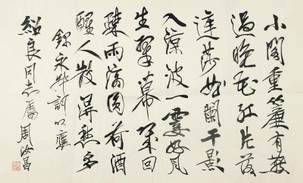 小閣重簾有燕
過晚花紅片落
庭莎曲闌干影
入涼波一霎好風
生翠幕幾回
疎雨滴圓荷酒
醒人散得愁多
錄以應
紹良同志屬 周汝昌